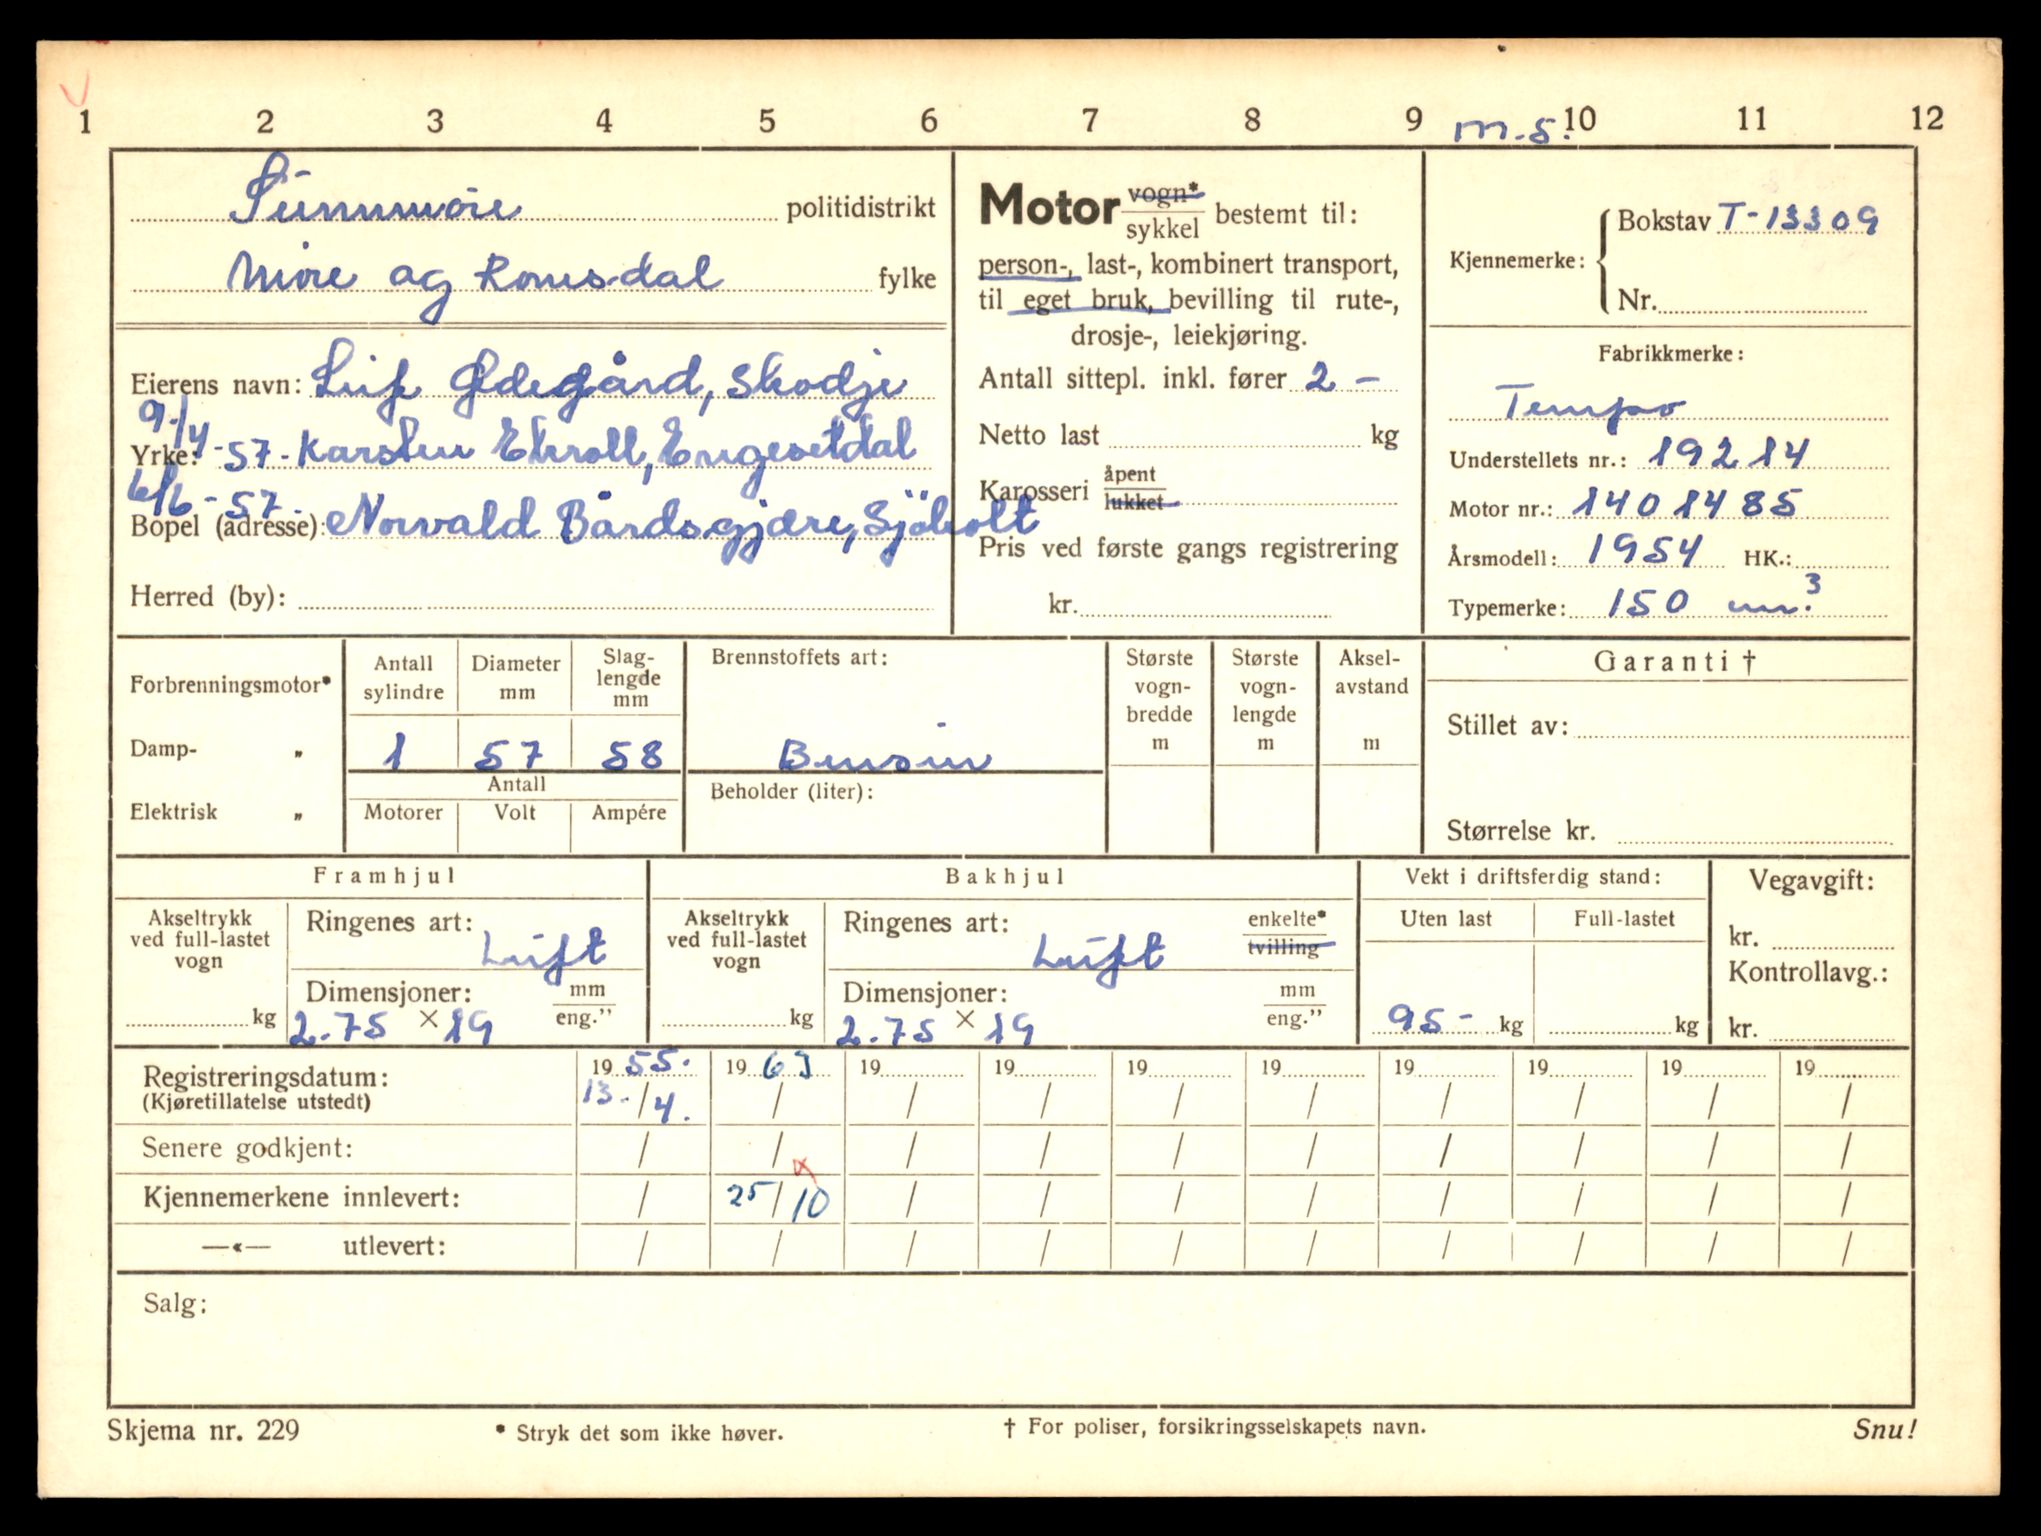 1 2 3 4 5 6 7 8 9 m.s. 10 11 12
Sunnmøre politidistrikt
Møre og Romsdal fylke
Eierens navn: Leif Ødegård, Skodje
9./4 -57. Karsten Ekroll, Engesetdal
Yrke:
6/6 -57. Norvald Bårdsgjære, Sjöholt
Bopel (adresse):
Herred (by):
Motor vogn* / sykkel bestemt til:
person-, last-, kombinert transport,
til eget bruk, bevilling til rute-,
drosje-, leiekjøring.
Antall sittepl. inkl. fører 2 -
Netto last kg
Karosseri åpent / lukket
Pris ved første gangs registrering
kr.
Kjennemerke: Bokstav T-13309
Nr.
Fabrikkmerke:
Tempo
Understellets nr.: 19214
Motor nr.: 1401485
Årsmodell: 1954 HK.:
Typemerke: 150 cm.³
Forbrenningsmotor*
Damp- „
Elektrisk „
Antall sylindre
Diameter mm
Slag-lengde mm
1 57 58
Antall
Motorer Volt Ampére
Brennstoffets art:
Bensin
Beholder (liter):
Største vogn-bredde m
Største vogn-lengde m
Aksel-avstand m
Garanti †
Stillet av:
Størrelse kr.
Framhjul
Akseltrykk ved full-lastet vogn
kg
Ringenes art: Luft
Dimensjoner: mm / eng.”
2.75 × 19
Bakhjul
Akseltrykk ved full-lastet vogn
kg
Ringenes art: Luft enkelte* / tvilling
Dimensjoner: mm / eng.”
2.75 × 19
Vekt i driftsferdig stand:
Uten last Full-lastet
95 - kg kg
Vegavgift:
kr.
Kontrollavg.:
kr.
Registreringsdatum: 19 55. 19 63 19 19 19 19 19 19 19 19
(Kjøretillatelse utstedt) 13./4. / / / / / / / / /
Senere godkjent: / / / / / / / / / /
Kjennemerkene innlevert: / 25/10 / / / / / / / /
—«— utlevert: / / / / / / / / / /
Salg:
Skjema nr. 229 * Stryk det som ikke høver. † For poliser, forsikringsselskapets navn. Snu!